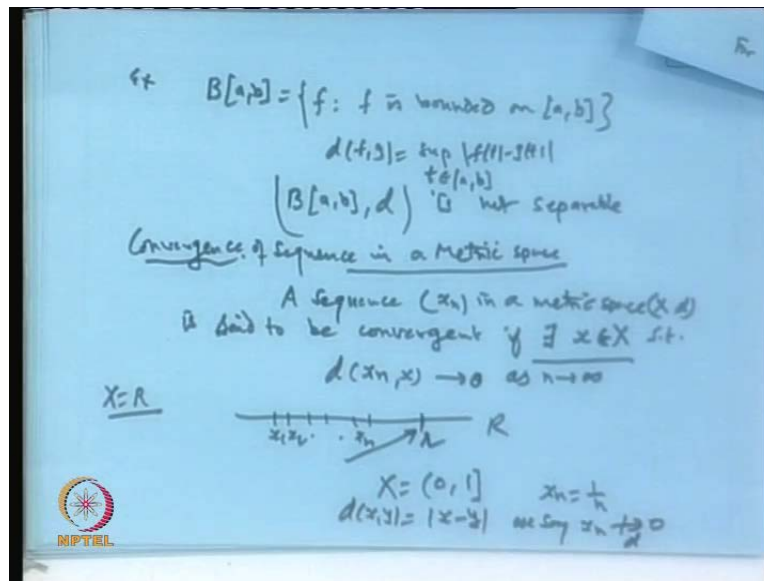 Ex B[a,b] = {f : f is bounded on [a,b]}
d(f,g) = sup |f(t)-g(t)|
t∈[a,b]
(B[a,b], d) is not separable
Convergence of Sequence in a Metric space
A sequence (xn) in a metric space (X d)
is said to be convergent if ∃ x∈X s.t.
d(xn,x) → 0 as n→∞
X=R
x1 x2 . . xn R
X = (0,1] xn = 1/n
d(x,y) = |x-y| we say xn ↛ 0
d
NPTEL